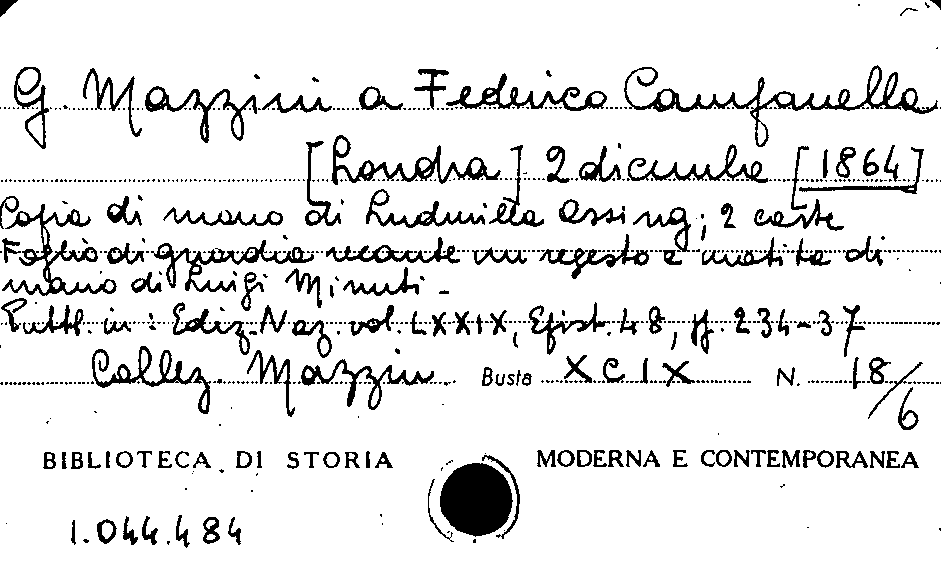 G. Mazzini a Federico Campanella
[Londra] 2 dicembre [1864]
Copia di mano di Ludmilla Assing; 2 carte
Foglio di guardia recante un regesto a matita di
mano di Luigi Minuti -
Pubbl. in: Ediz. Naz. vol. LXXIX, Epist. 48, pp. 234-37
Collez. Mazzini Busta XCIX N. 18/6
BIBLIOTECA DI STORIA MODERNA E CONTEMPORANEA
1.044.484